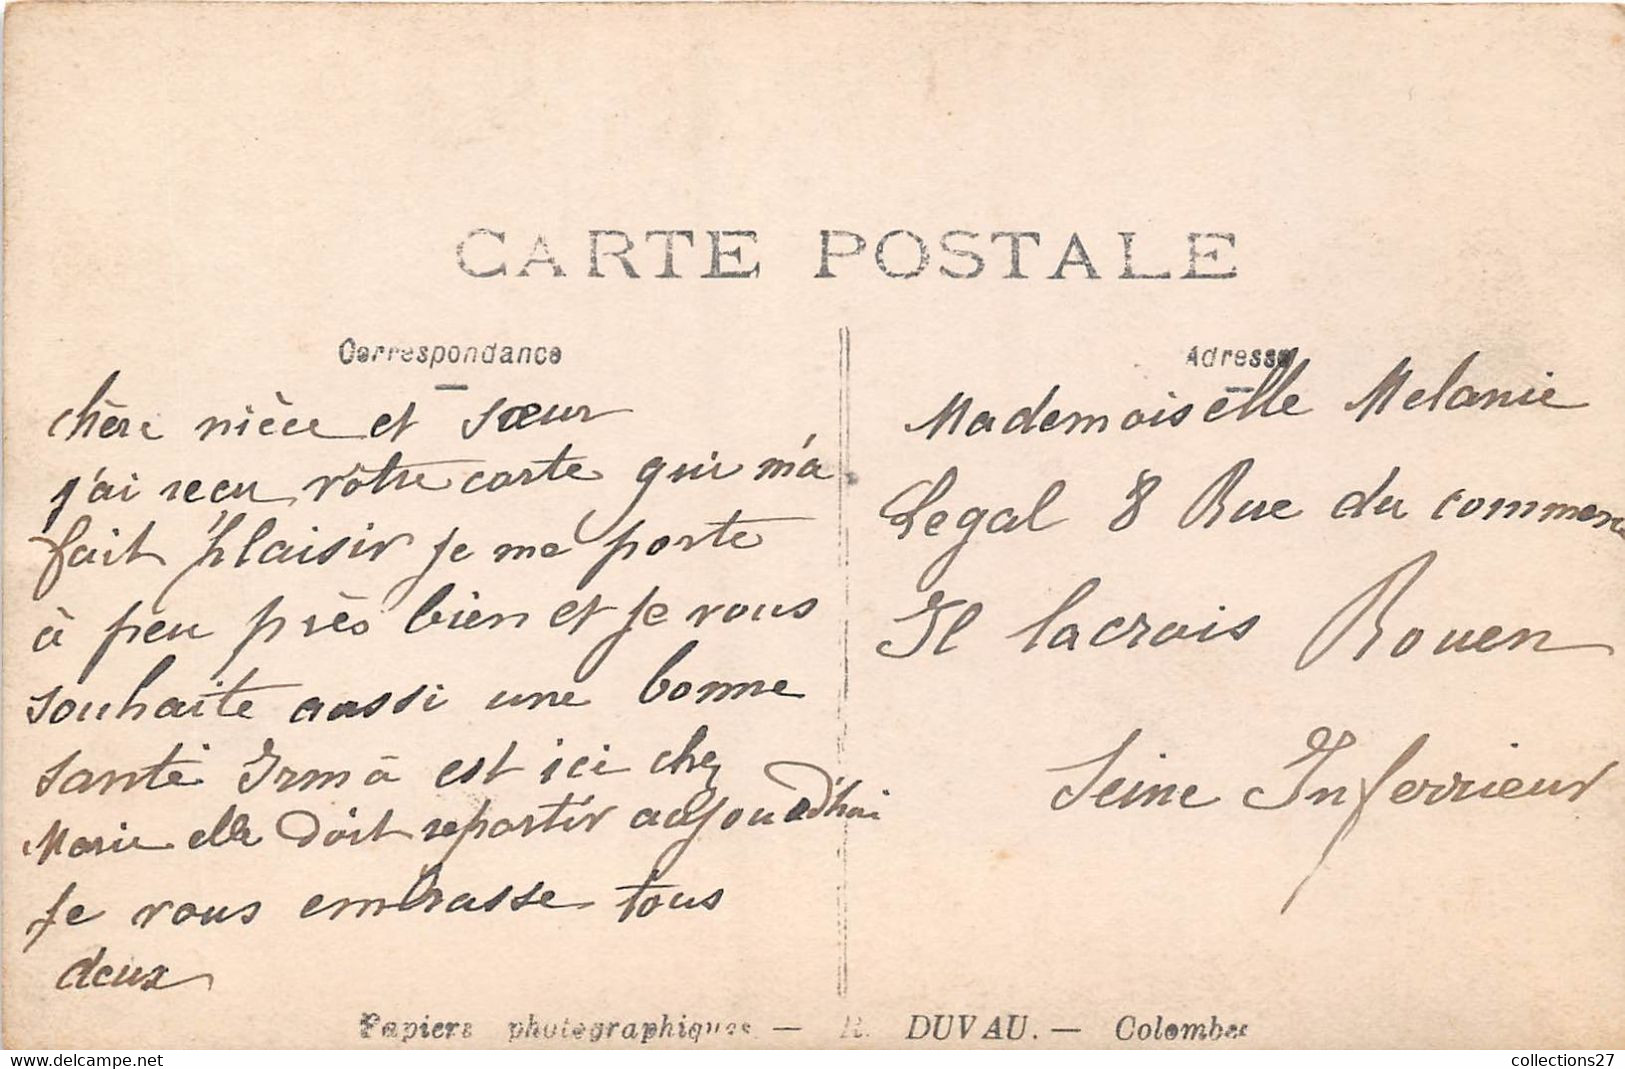 CARTE POSTALE
Correspondance
chère nièce et sœur
j'ai reçu vôtre carte qui m'a
fait plaisir je me porte
à peu près bien et je vous
souhaite aussi une bonne
santé Irma est ici chez
Marie elle doit repartir aujourd'hui
je vous embrasse tous
deux
Adresse
Mademoiselle Melanie
Legal 8 Rue du commerc
Il lacrois Rouen
Seine Inferrieur
Papiers photographiques — R. DUVAU. — Colombes
collections27